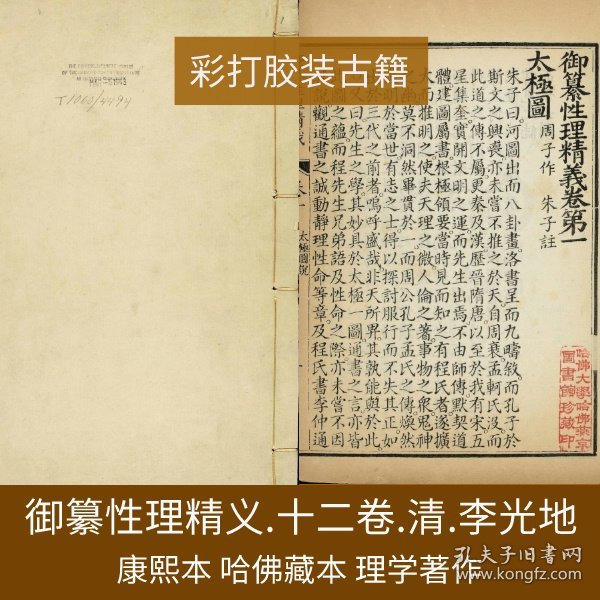 彩打胶装古籍
T1060/4494
御纂性理精義卷第一
太極圖 周子作 朱子註
朱子曰。河圖出而八卦畫。洛書呈而九疇敘。而孔子於
斯文之興喪。亦未嘗不推之於天。自周衰。孟軻氏沒。而
此道之傳不屬。更秦及漢。歷晉隋唐。以至於我有宋。五
星集奎。實開文明之運。而先生出焉。不由師傅。默契道
體。建圖屬書。根極領要。當時見而知之。有程氏者。遂擴
大而推明之。使夫天理之微。人倫之著。事物之衆。鬼神
之幽。莫不洞然畢貫於一。而周公孔子孟氏之傳。煥然
明於當世。有志之士。得以探討服行。而不失其正。如
於三代之前者。嗚呼盛哉。非天所畀。其孰能與於此。
又曰。先生之學。其妙具於太極一圖。通書之言。亦皆
圖之蘊。而程先生兄弟語及性命之際。亦未嘗不因
說。觀通書之誠動靜理性命等章。及程氏書李仲通
卷一 太極圖說
哈佛大學哈佛燕京
圖書館珍藏印
御纂性理精义.十二卷.清.李光地
康熙本 哈佛藏本 理学著作
孔夫子旧书网
www.kongfz.com